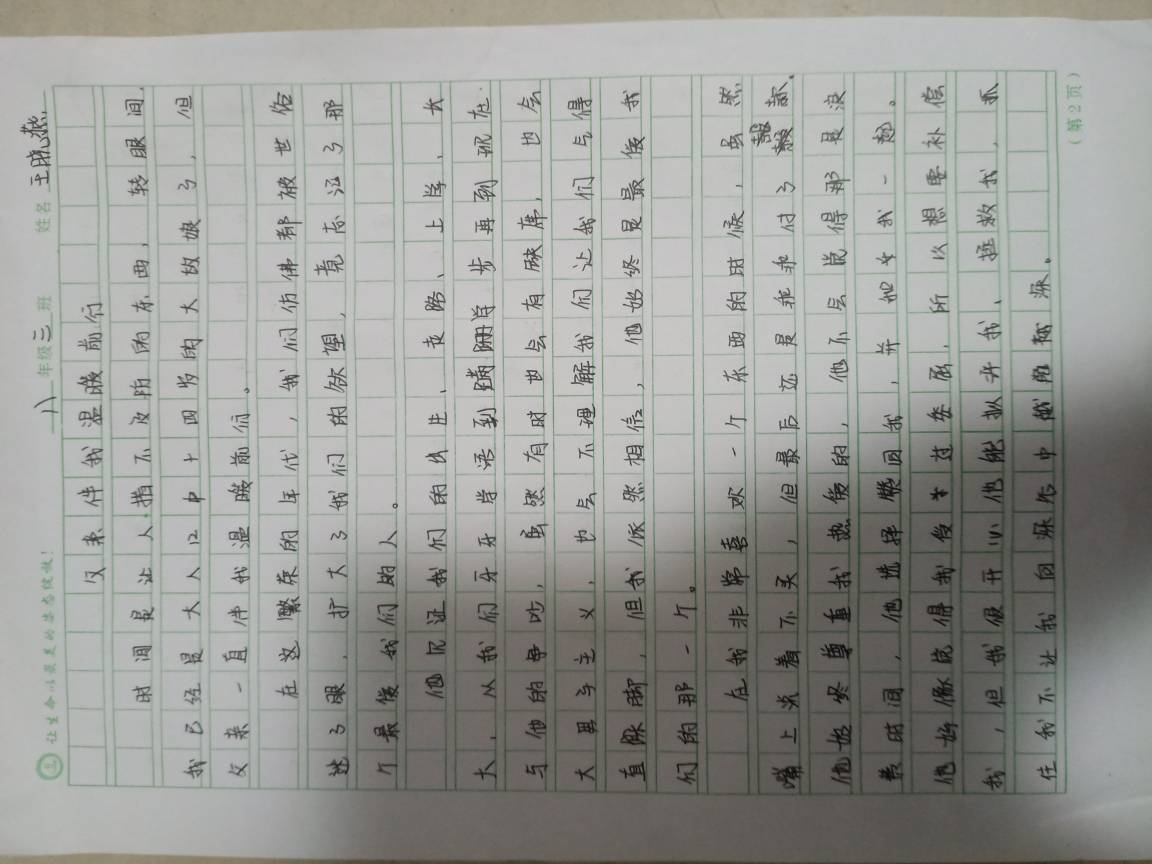 让生命以最美的姿态绽放!
八 年级 三 班 姓名 王晓燕
父亲伴我温暖前行
时间是让人措不及防的东西,转眼间,
我已经是大人口中十四岁的大故娘了,但
父亲一直伴我温暖前行。
在这繁荣的年代,我们仿佛都被世俗
迷了眼,扩大了我们的欲望,竟忘记了那
个最後我们的人。
他见证我们的出生、走路、上学、长
大,从我们牙牙学语到蹒跚学步再到现在.
与他的争吵,虽然有时也会有缺席,也会
大男子主义,也会不理解我们让我们气得
直跺脚,但我依然相信,他始终是最後我
们的那一个。
在我非常喜欢一个东西的时候,虽然
嘴上说着不买,但最后还是乖乖付了款.
他始终尊重我热爱的,他不会说得那是浪
费时间,他选择赞同我,并和女我一起。
他好像觉得我受过委屈,所以想要补偿
我,但我很开心他能拟开我,拯救我,不
任我不让我向深处中越陷越深。
(第2页)